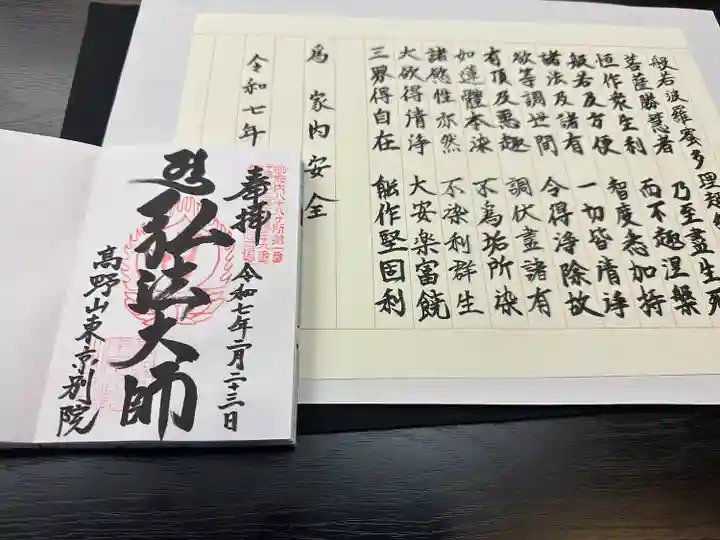 般若波羅蜜多理趣
菩薩勝慧者 乃至盡生死
恒作衆生利 而不趣涅槃
般若及方便 智度悉加持
諸法及諸有 一切皆清浄
欲等調世間 令得浄除故
有頂及惡趣 調伏盡諸有
如蓮體本染 不為垢所染
諸慾性亦然 不染利群生
大欲得清浄 大安楽富饒
三界得自在 能作堅固利
為 家内安全
令和七年
奉拝 令和七年二月二十三日
弘法大師
高野山東京別院